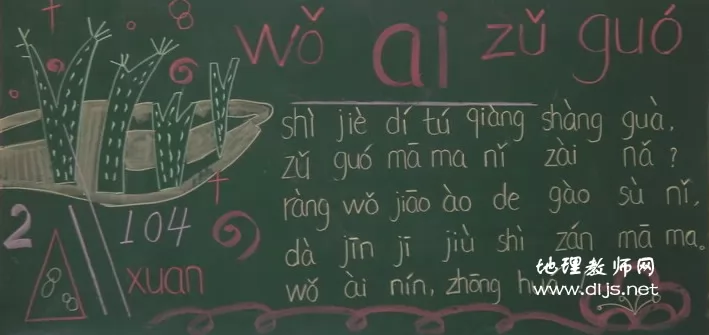 wǒ ai zǔ guó
shì jiè dí tú qiàng shàng guà,
zǔ guó mā ma nǐ zài nǎ?
ràng wǒ jiāo ào de gào sù nǐ,
dà jīn jī jiù shì zán mā ma。
wǒ ài nín, zhōng hua
2 104
xuan
地理教师网
www.dljs.net